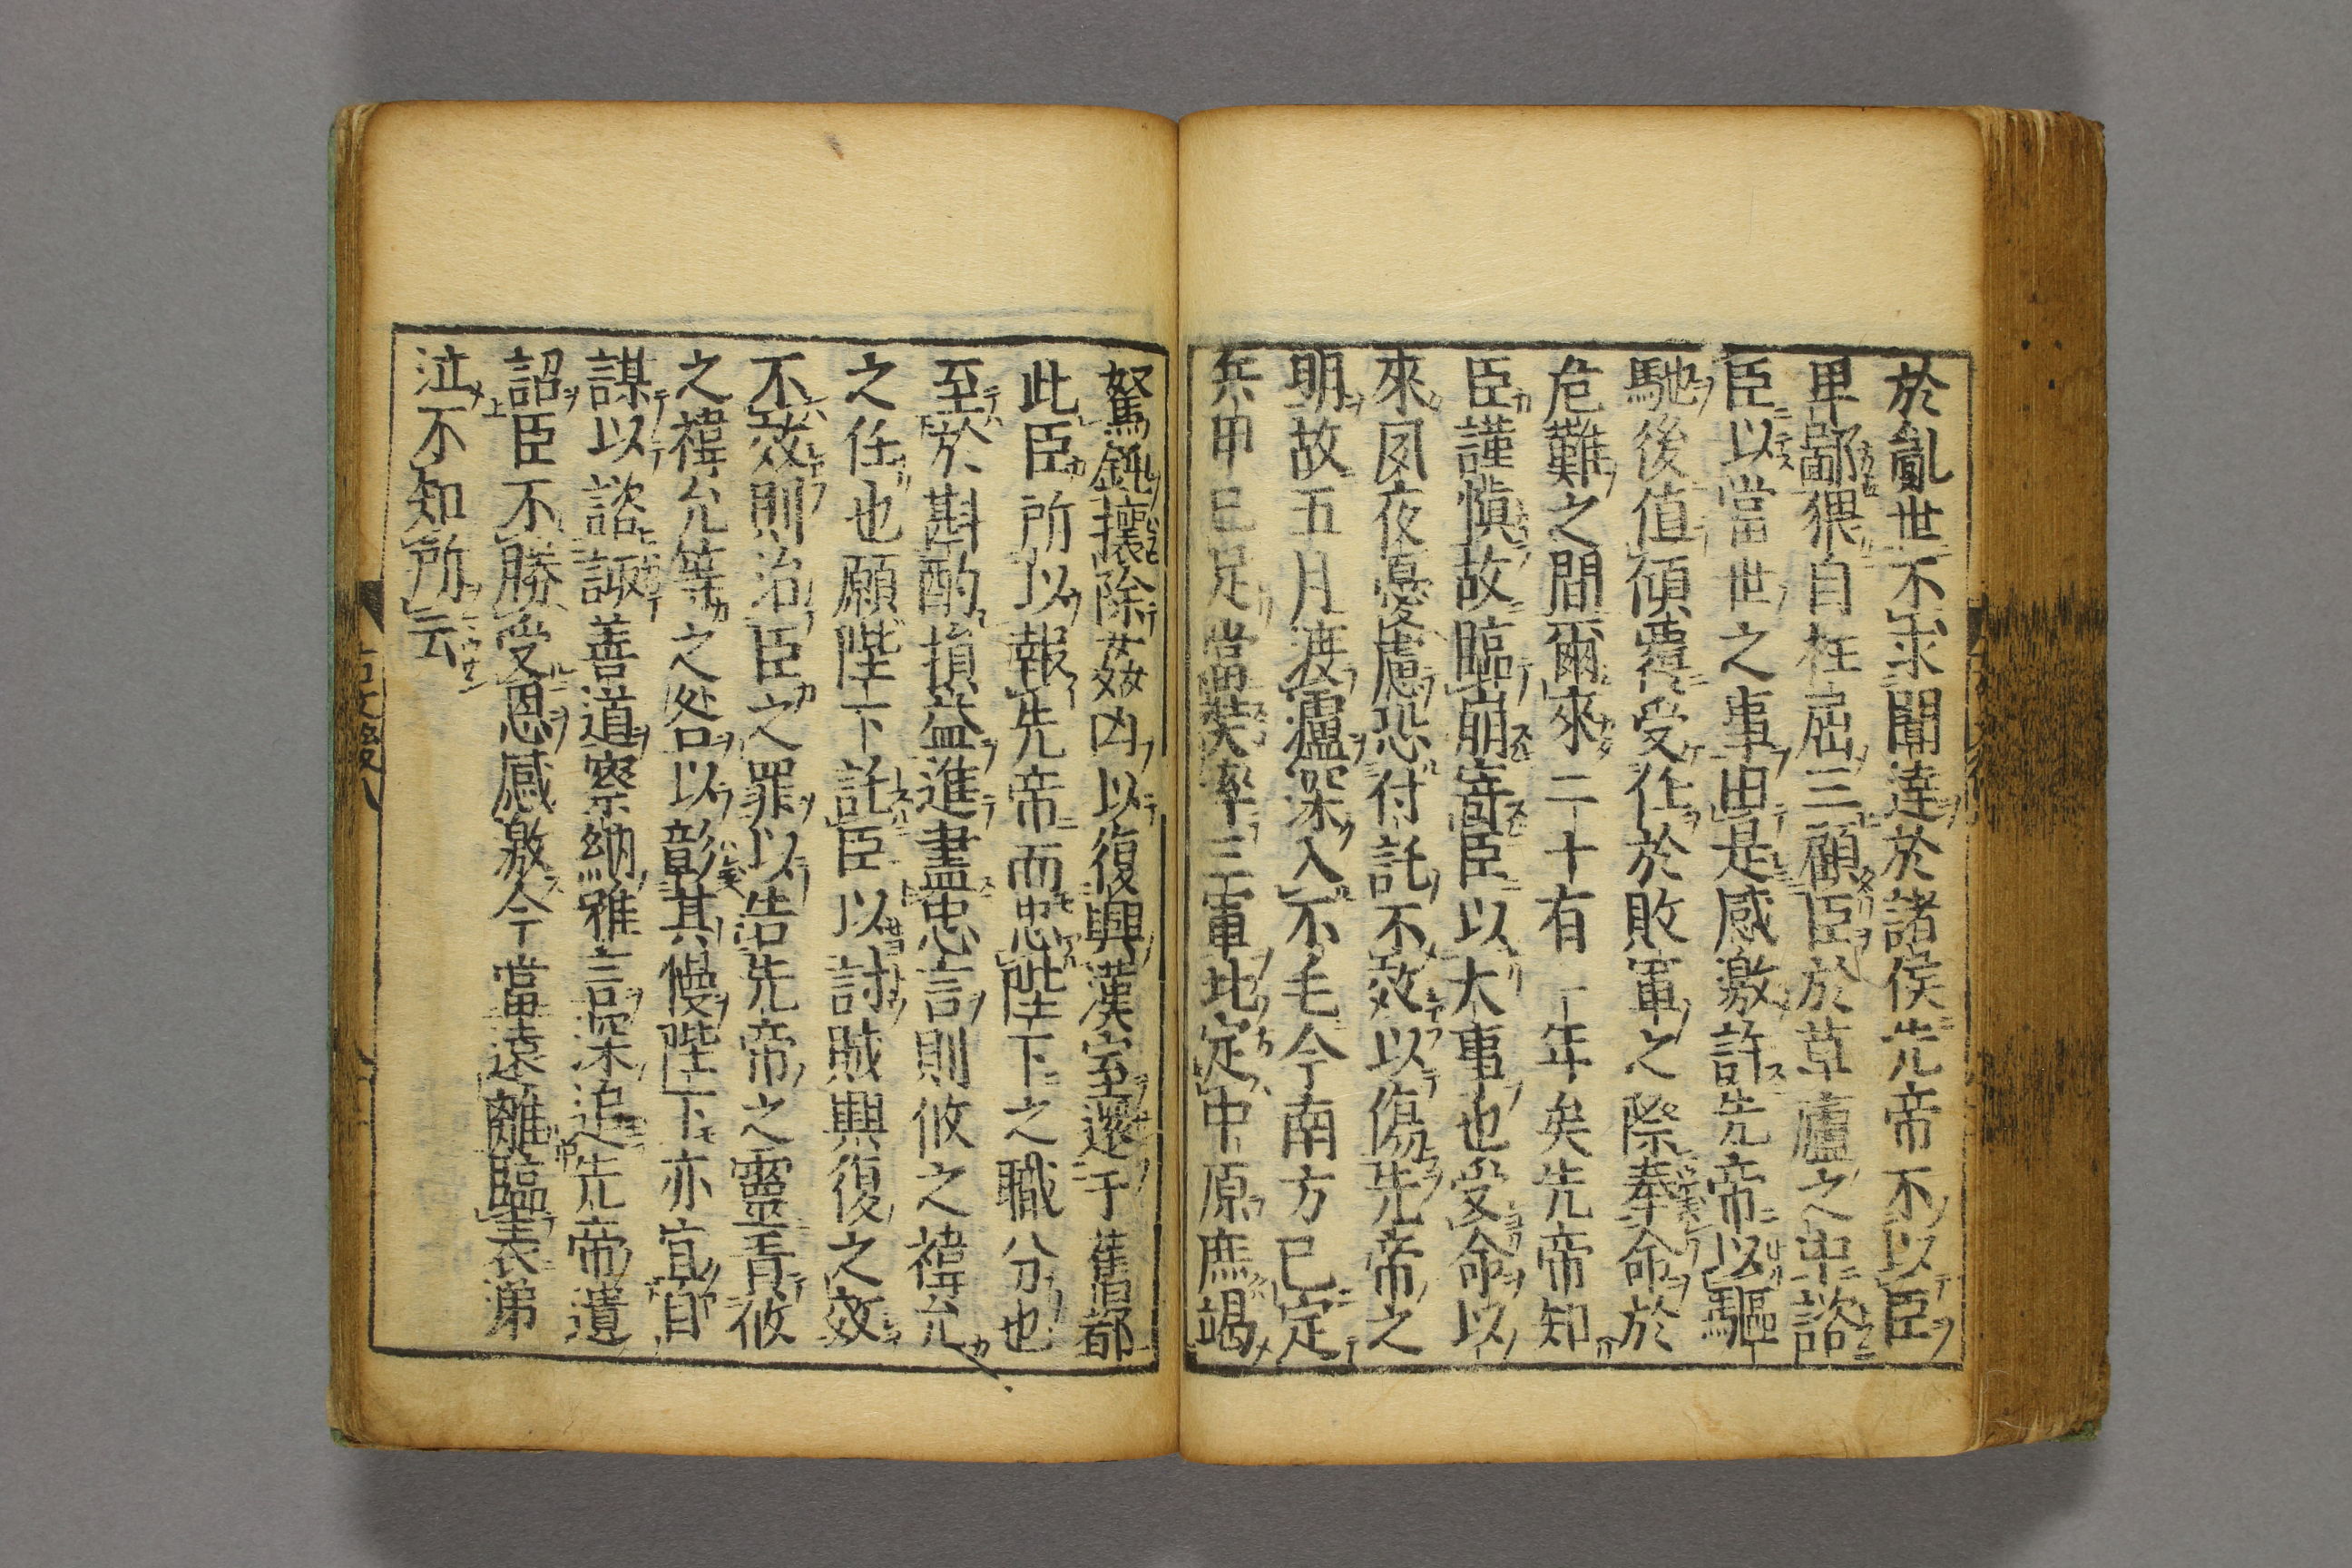 於亂世不求聞達於諸侯先帝不以臣
卑鄙猥自枉屈三顧臣於草廬之中諮
臣以當世之事由是感激許先帝以驅
馳後值傾覆受任於敗軍之際奉命於
危難之間爾來二十有一年矣先帝知
臣謹慎故臨崩寄臣以大事也受命以
來夙夜憂慮恐付託不效以傷先帝之
明故五月渡瀘深入不毛今南方已定
兵甲已足當奨率三軍北定中原庶竭
駑鈍攘除姦凶以復興漢室還于舊都
此臣所以報先帝而忠陛下之職分也
至於斟酌損益進盡忠言則攸之禕允
之任也願陛下託臣以討賊興復之效
不效則治臣之罪以告先帝之靈責攸
之禕允等之咎以彰其慢陛下亦宜自
謀以諮諏善道察納雅言深追先帝遺
詔臣不勝受恩感激今當遠離臨表涕
泣不知所云